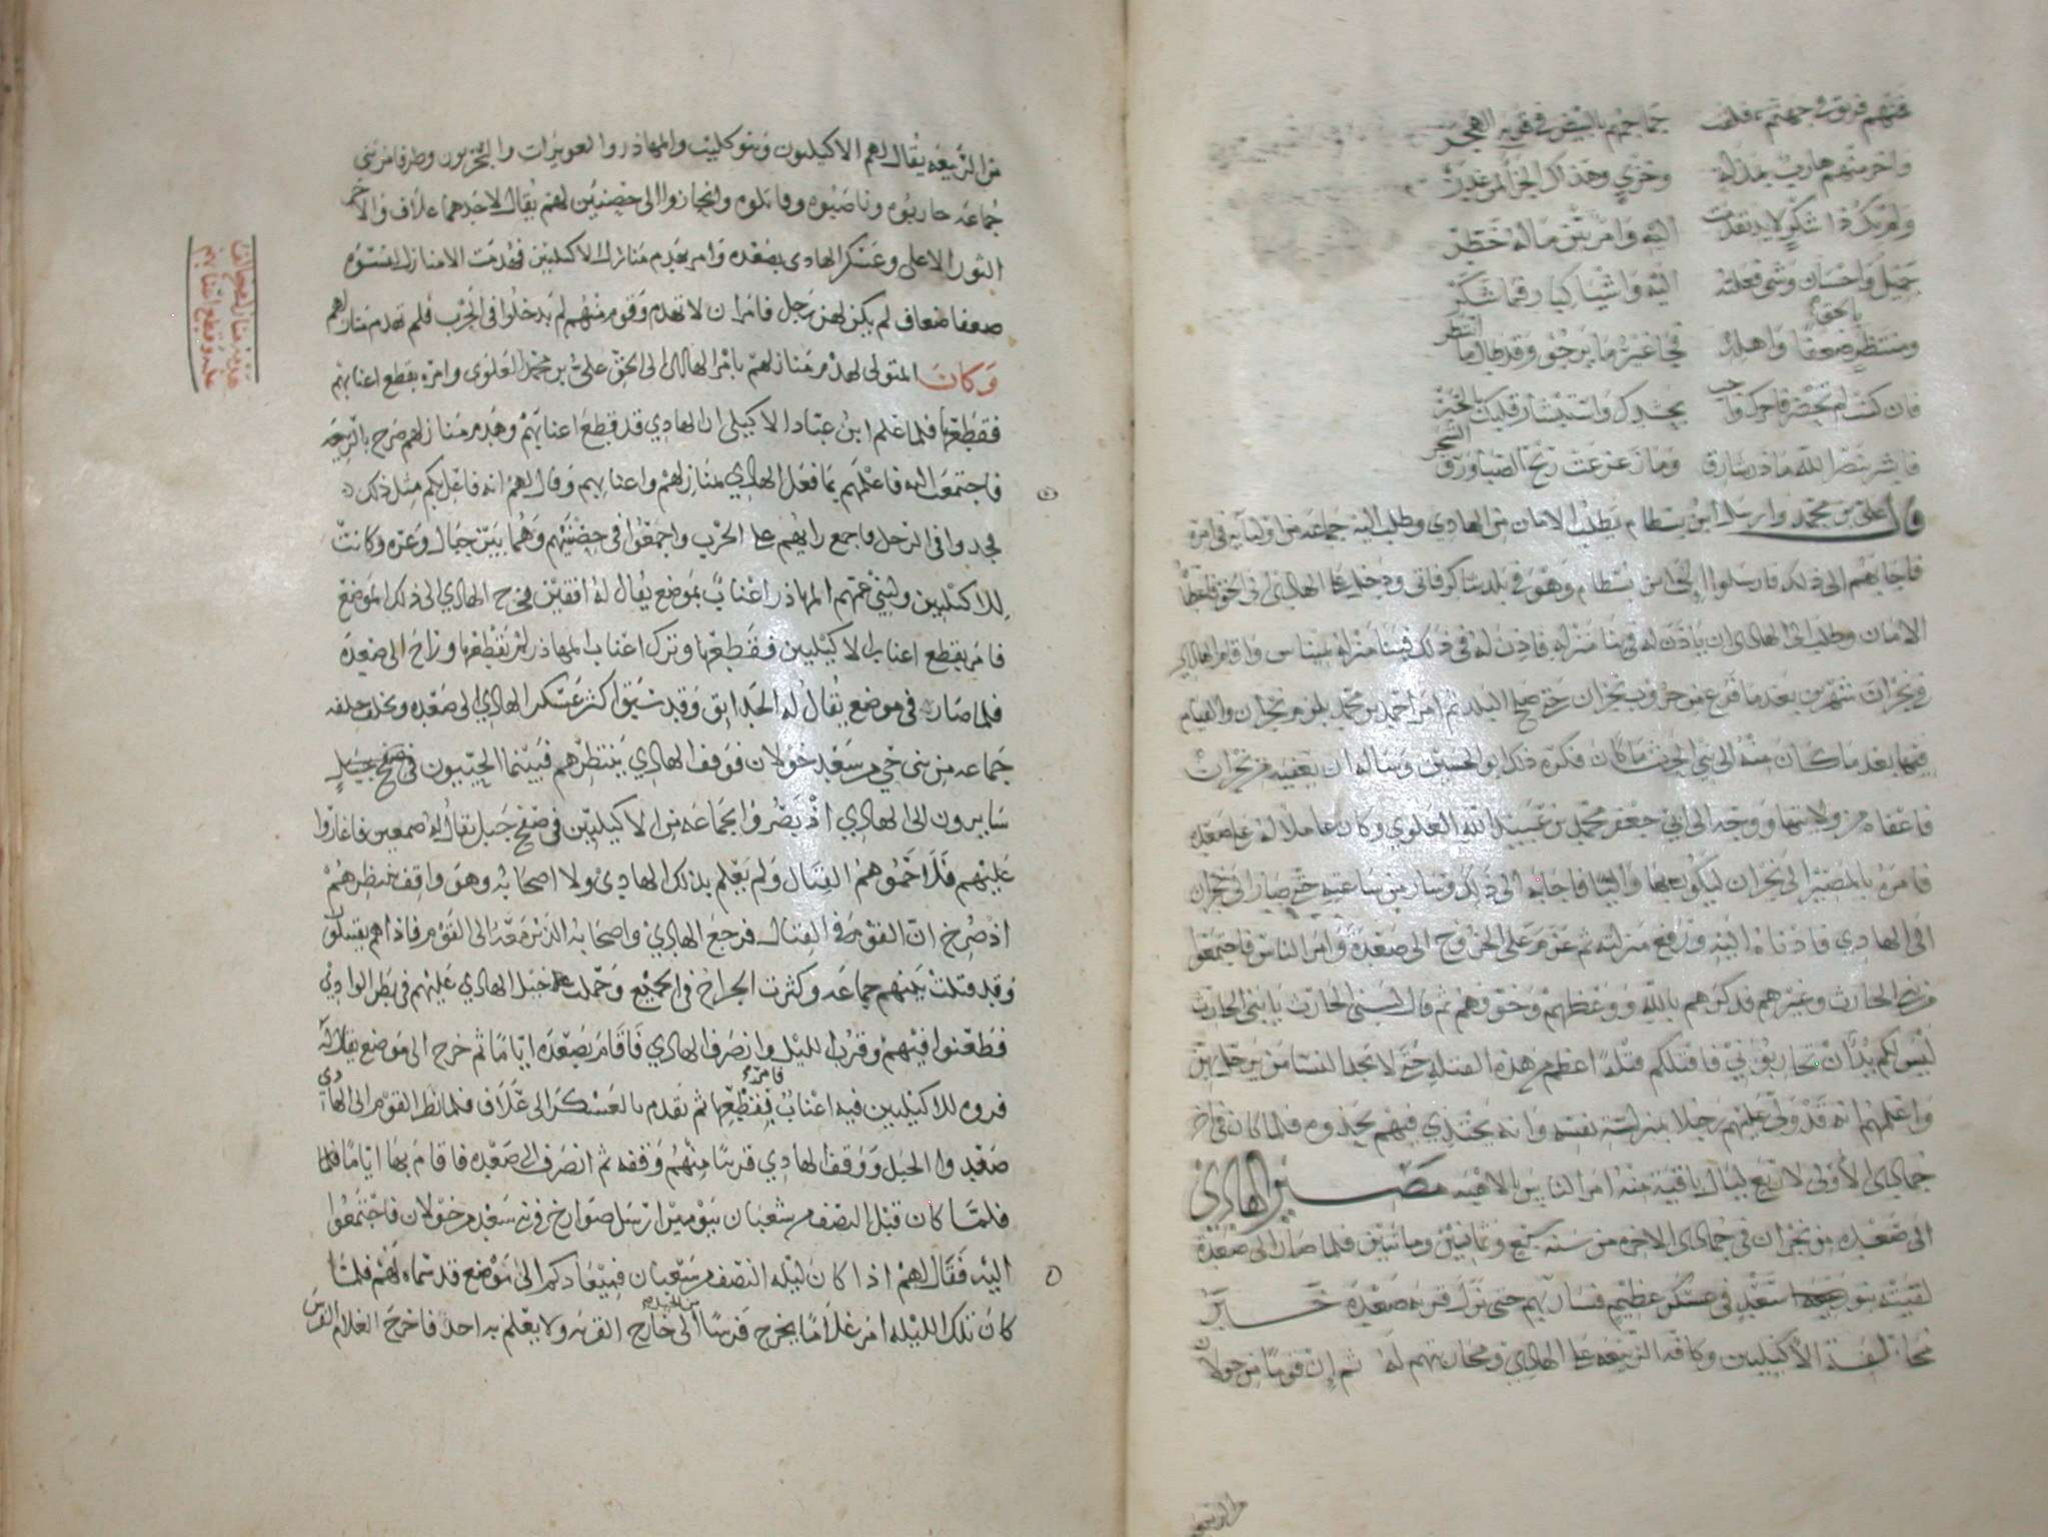 فمنهم فريق في جهنم جماجمهم بالبيض في
واخر منهم هارب بمذلة وخزي وهذاك الجزا لمن غدر
ولم يك ذا شكر لايد تقدمت اليه وامر بين ماله خطر
جميل واحسان وشي فعلته اليه واشيا كبار فما شكر
ومنتظر ضعفا واهله بالحق فجا غير ما يرجو وقد طال ما انتظر
فان كنت لم تحضر فاخوك بجندك واستبشار قلبك بالخبر
فابشر بنصر الله ما ذر شارق وما زعزعت ريح الصبا ورق الشجر
قال علي بن محمد وارسل ابن بسطام يطلب الامان من الهادي وطلب اليه جماعة من اوليآيه في امره
فاجابهم الى ذلك فارسلوا الى ابن بسطام وهو في بلد شاكر فاتى ودخل على الهادي الى الحق فاعطاه
الامان وطلب الى الهادي ان ياذن له في بنا منزله فاذن له في ذلك فبنا منزله بميناس واقام الهادي
في نجران شهرين بعد ما فرغ من حروب نجران حتى صلح البلد ثم امر احمد بن محمد بلزوم نجران والقيام
فيها بعد ما كان منه الى بني الحرث ما كان فكره ذلك ابو الحسين وساله ان يعفيه من نجران
فاعفاه من ولايتها ووجه الى ابي جعفر محمد بن عبيد الله العلوي وكان عاملا له على صعده
فامره بالمصير الى نجران ليكون بها واليا فاجابه الى ذلك وسار من ساعته حتى صار الى نجران
الى الهادي فادناه اليه ورفع منزلته ثم عزم على الخروج الى صعدة وامر الناس فاجتمعوا
من بني الحارث وغيرهم فذكرهم بالله ووعظهم وخوفهم ثم قال لبني الحارث يا بني الحارث
ليس لكم بد ان تحاربوني فاقتلكم قتلة اعظم من هذه القتلة حتى لا تجد النسا من
واعلمهم انه قد ولى عليهم رجلا بمنزلة نفسه وانه يحتذي فيهم بحذوه فلما كان في اخر
جمادى الاولى لاربع ليال باقية منه امر الناس بالاهبه مصير الهادي
الى صعده من نجران في جمادى الاخرة من سنة سبع وثمانين ومائتين فلما صار الى صعدة
لقيته بنو سعد في عسكر عظيم فسار بهم حتى نزل قرية صعدة خبر
مخالفة الاكيليين وكافة الربيعه على الهادي ومحاربتهم له ثم ان قوما من خولان
من الربيعه
من الربيعه يقال لهم الاكيليون وبنو كليب والمهاذر والعويرات والبحريون وطرفا من بني
جماعه حاربوه وناصبوه وقاتلوه وانحازوا الى حصنين لهم يقال لاحدهما علاف والاخر
الثور الاعلى وعسكر الهادي بصعده وامر بهدم منازل الاكيليين فهدمت الا منازل لنسوه
ضعفا ضعاف لم يكن لهن رجل فامر ان لا تهدم وقوم منهم لم يدخلوا في الحرب فلم تهدم منازلهم
وكان المتولي لهدم منازلهم بامر الهادي الى الحق علي بن محمد العلوي وامره بقطع اعنابهم
فقطعها فلما علم ابن عباد الاكيلي ان الهادي قد قطع اعنابهم وهدم منازلهم صرخ بالربيعه
فاجتمعت اليه فاعلمهم بما فعل الهادي بمنازلهم واعنابهم وقال لهم انه فاعل بكم مثل ذلك
فجدوا في الرحل فاجمع رايهم على الحرب واجمعوا في حصنيهم وهما بين جبال وعره وكانت
للاكيليين ولبني عمهم المهاذر اعناب بموضع يقال له افقين فخرج الهادي الى ذلك الموضع
فامر بقطع اعناب الاكيليين فقطعها وترك اعناب المهاذر لم يقطعها وراح الى صعدة
فلما صار في موضع يقال له الحدايق وقد سبق اكثر عسكر الهادي الى صعده وتخلف خلفه
جماعه من بني حي من سعد خولان فوقف الهادي ينتظرهم فبينما الحييون في صفح جبل
سايرون الى الهادي اذ بصروا بجماعه من الاكيليين في صفح جبل يقال له صمعين فاغاروا
عليهم فلاحموهم القتال ولم يعلم بذلك الهادي ولا اصحابه وهو واقف ينتظرهم
اذ صرخ ان القوم في القتال فرجع الهادي واصحابه الذين معه الى القوم فاذا هم يقتتلون
وقد قتلت بينهم جماعه وكثرت الجراح في الجميع وحملت خيل الهادي عليهم في بطن الوادي
فطعنوا فيهم وقرب الليل وانصرف الهادي فاقام بصعده اياما ثم خرج الى موضع يقال له
فروه للاكيليين فيه اعناب فامر فقطعها ثم تقدم بالعسكر الى علاف فلما نظر القوم الى الهادي
صعدوا الجبل ووقف الهادي قريبا منهم وقفه ثم انصرف الى صعده فاقام بها اياما
فلما كان قبل النصف من شعبان بيومين ارسل صوارخ في سعد من خولان فاجتمعوا
اليه فقال لهم اذا كان ليله النصف من شعبان فميعادكم الى موضع قد سماه لهم فلما
كان تلك الليله امر غلاما يخرج فرسا من الخيل الى خارج القريه ولا يعلم به احد فاخرج الغلام الفرس
هدم منازل
علاف وقطع اعنابهم